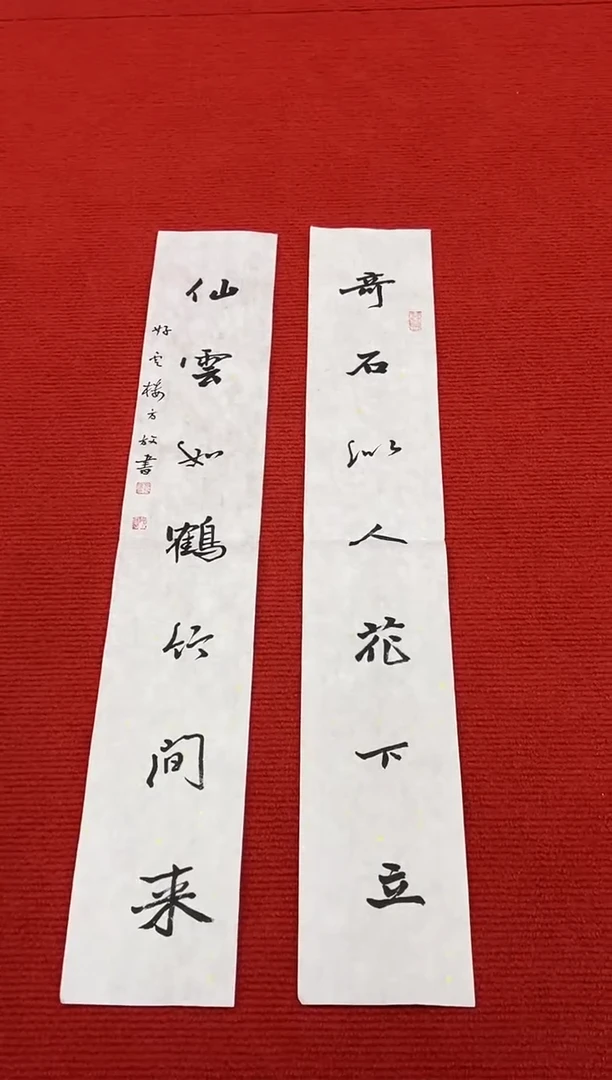 奇石似人花下立
仙雲如鶴竹间来
好雲楼方放書